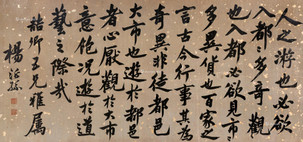 人之游也必欲
入都々多奇觀
也入都必欲見市々
多異貨也百家之
言古今行事其為
奇異非徒都邑
大市也遊於都邑
者心厭觀於大市
意飽况遊於道
藝之際哉
五兄雅属
楊沂孫